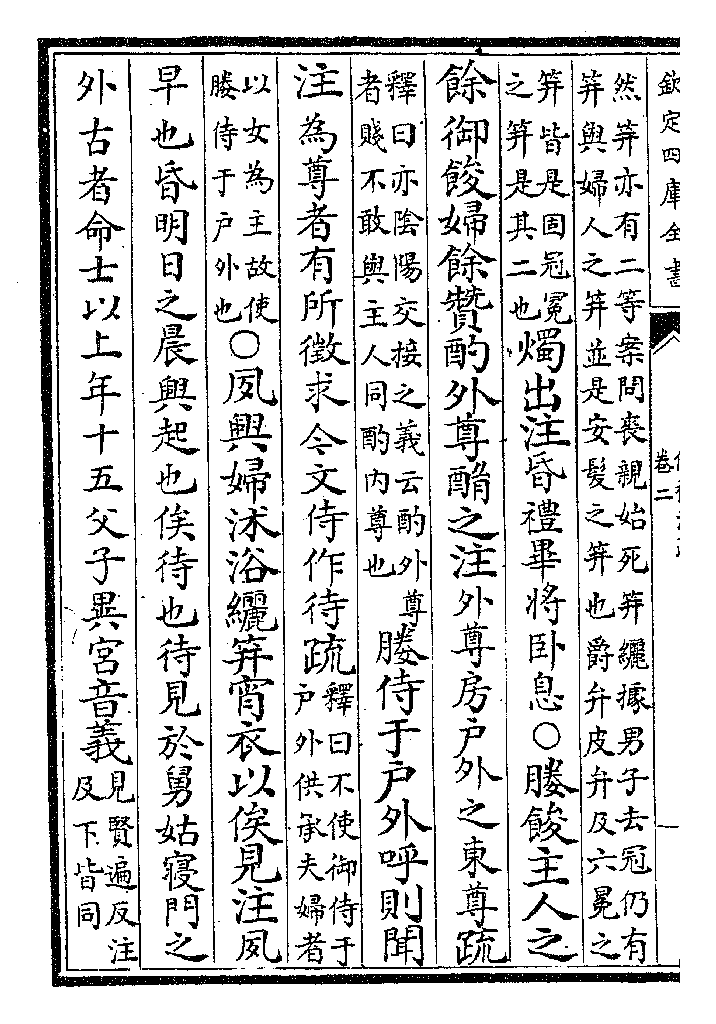 欽定四庫全書
卷二
然笄亦有二等案問喪親始死笄纚據男子去冠仍有
笄與婦人之笄並是安髮之笄也爵弁皮弁及六冕之
笄皆是固冠冕
之笄是其二也
燭出注昏禮畢將卧息○媵餕主人之
餘御餕婦餘贊酌外尊酳之注外尊房戶外之東尊疏
釋曰亦陰陽交接之義云酌外尊
者賤不敢與主人同酌內尊也
媵侍于戶外呼則聞
注為尊者有所徵求今文侍作待疏
釋曰不使御侍于
戶外供承夫婦者
以女為主故使
媵侍于戶外也
○夙興婦沐浴纚笄宵衣以俟見注夙
早也昏明日之晨興起也俟待也待見於舅姑寢門之
外古者命士以上年十五父子異宮音義
見賢遍反注
及下皆同